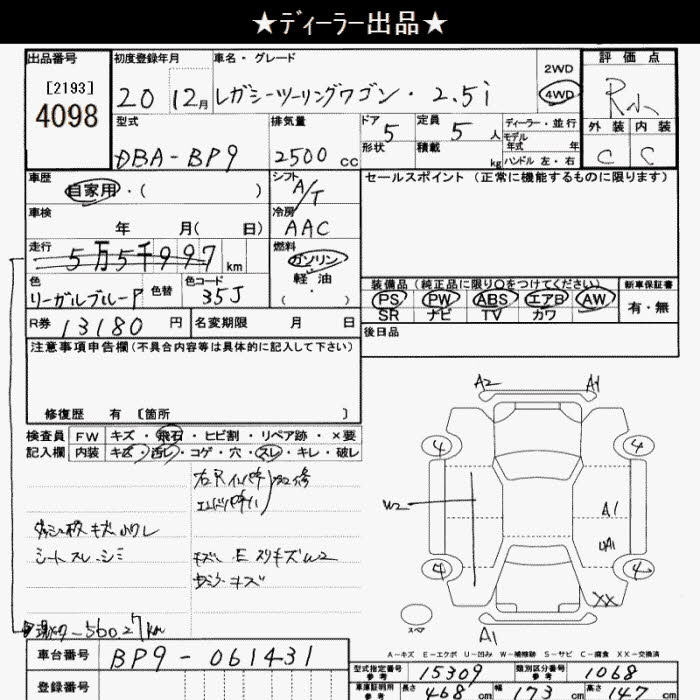 ★ディーラー出品★
出品番号 初度登録年月 車名・グレード 2WD 評価点
[2193] 4098 20 12月 レガシーツーリングワゴン・2.5i 4WD R
型式 排気量 ドア 5 定員 5 人 ディーラー・並行 外装 内装
形状 積載 kg モデル年式 年 C C
DBA-BP9 2500cc ハンドル 左・右
車歴 シフト A/T セールスポイント (正常に機能するものに限ります)
自家用・( )
車検 冷房
年 月( 日) AAC
走行 燃料
5万5千997km ガソリン
軽油
色 色替 色コード ( ・ )
リーガルブルーP 35J
装備品 (純正品に限り○をつけてください) 新車保証書
PS PW ABS エアB AW 有・無
SR ナビ TV カワ
R券 13180円 名変期限 月 日
後日品
注意事項申告欄(不具合内容等は具体的に記入して下さい)
修復歴 有 [箇所 ]
検査員 FW キズ・飛石・ヒビ割・リペア跡・×要
記入欄 内装 キズ・汚レ・コゲ・穴・スレ・キレ・破レ
A2 A1
4 4
W2 A1
UA1
4 4
XX
スペア
A1
シートスレ・シミ
56027km
A-キズ E-エクボ U-凹み W-補修跡 S-サビ C-腐食 XX-交換済
車台番号 BP9-061431
登録番号
型式指定番号 参考 15309 類別区分番号 参考 1068
車庫証明用 参考 長さ 468 cm 幅 173 cm 高さ 147 cm